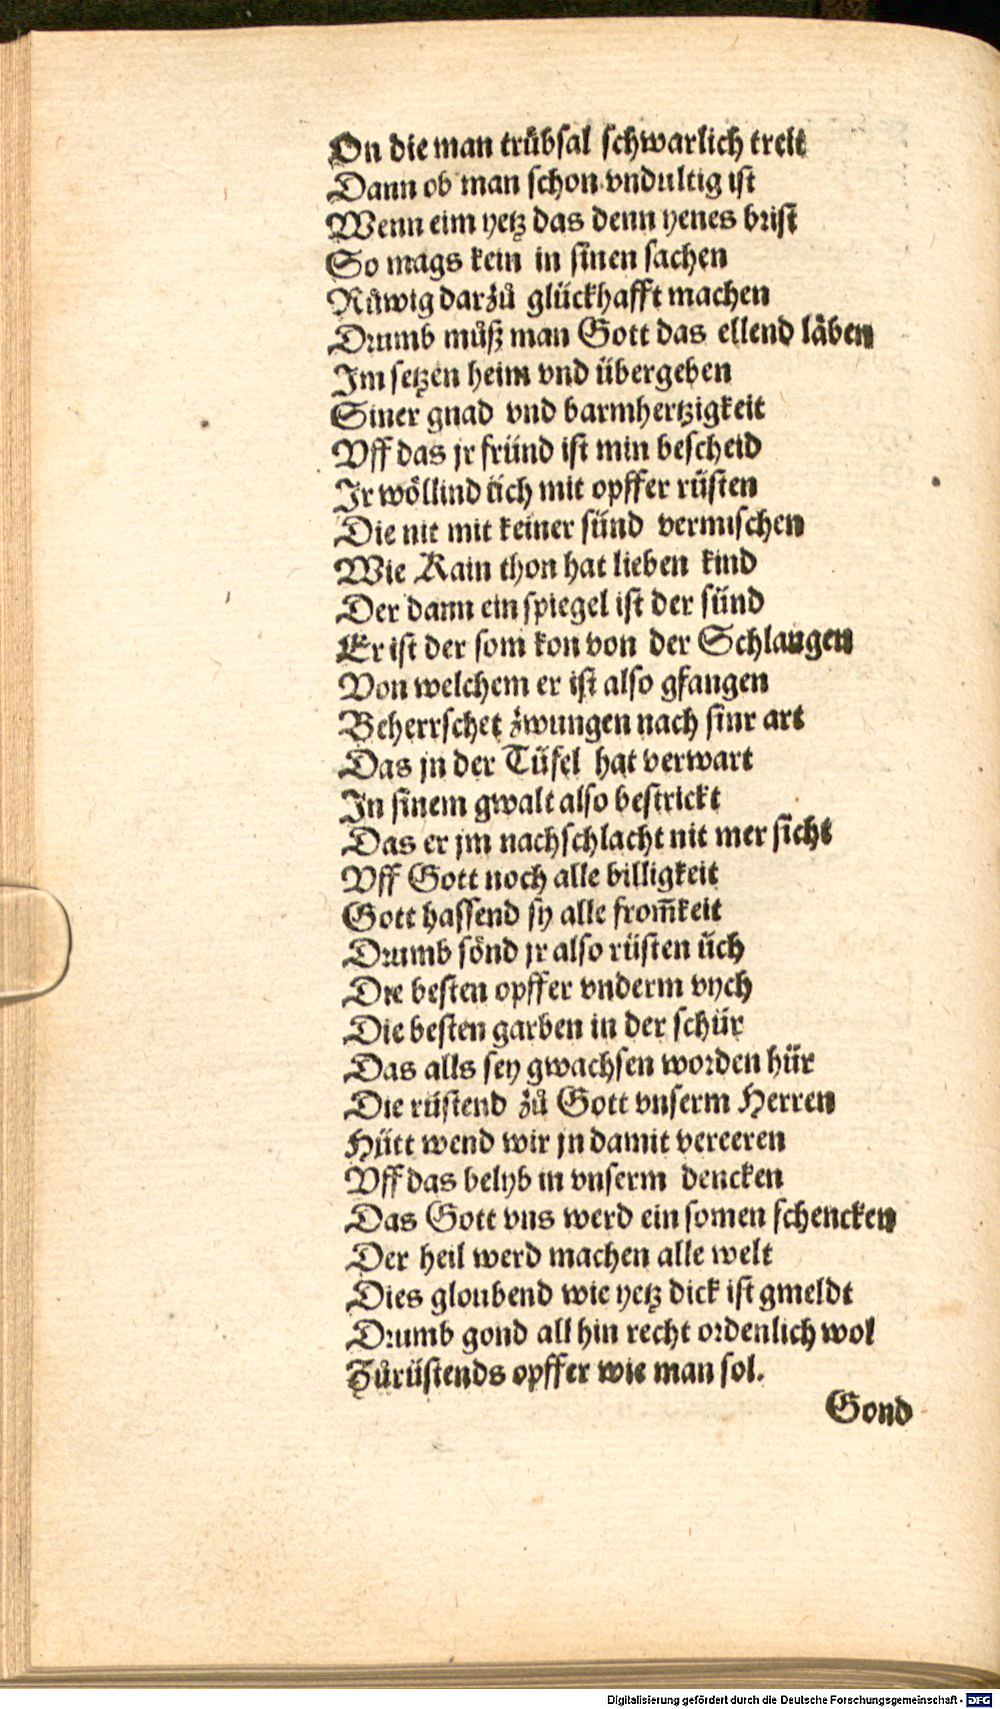 On die man trübsal schwarlich treit
Dann ob man schon vndultig ist
Wenn eim yetz das denn yenes brist
So mags kein in sinen sachen
Růwig darzů glückhafft machen
Drumb můß man Gott das ellend läben
Im setzen heim vnd übergeben
Siner gnad vnd barmhertzigkeit
Vff das jr fründ ist min bescheid
Ir wöllind üch mit opffer rüsten
Die nit mit keiner sünd vermischen
Wie Kain thon hat lieben kind
Der dann ein spiegel ist der sünd
Er ist der som kon von der Schlangen
Von welchem er ist also gfangen
Beherrschet zwungen nach sinr art
Das jn der Tüfel hat verwart
In sinem gwalt also bestrickt
Das er jm nachschlacht nit mer sicht
Vff Gott noch alle billigkeit
Gott hassend sy alle from̄keit
Drumb sönd jr also rüsten üch
Die besten opffer vnderm vych
Die besten garben in der schür
Das alls sey gwachsen worden hür
Die rüstend zů Gott vnserm Herren
Hütt wend wir jn damit vereeren
Vff das belyb in vnserm dencken
Das Gott vns werd ein somen schencken
Der heil werd machen alle welt
Dies gloubend wie yetz dick ist gmeldt
Drumb gond all hin recht ordenlich wol
Zůrüstends opffer wie man sol.
Gond
Digitalisierung gefördert durch die Deutsche Forschungsgemeinschaft - DFG